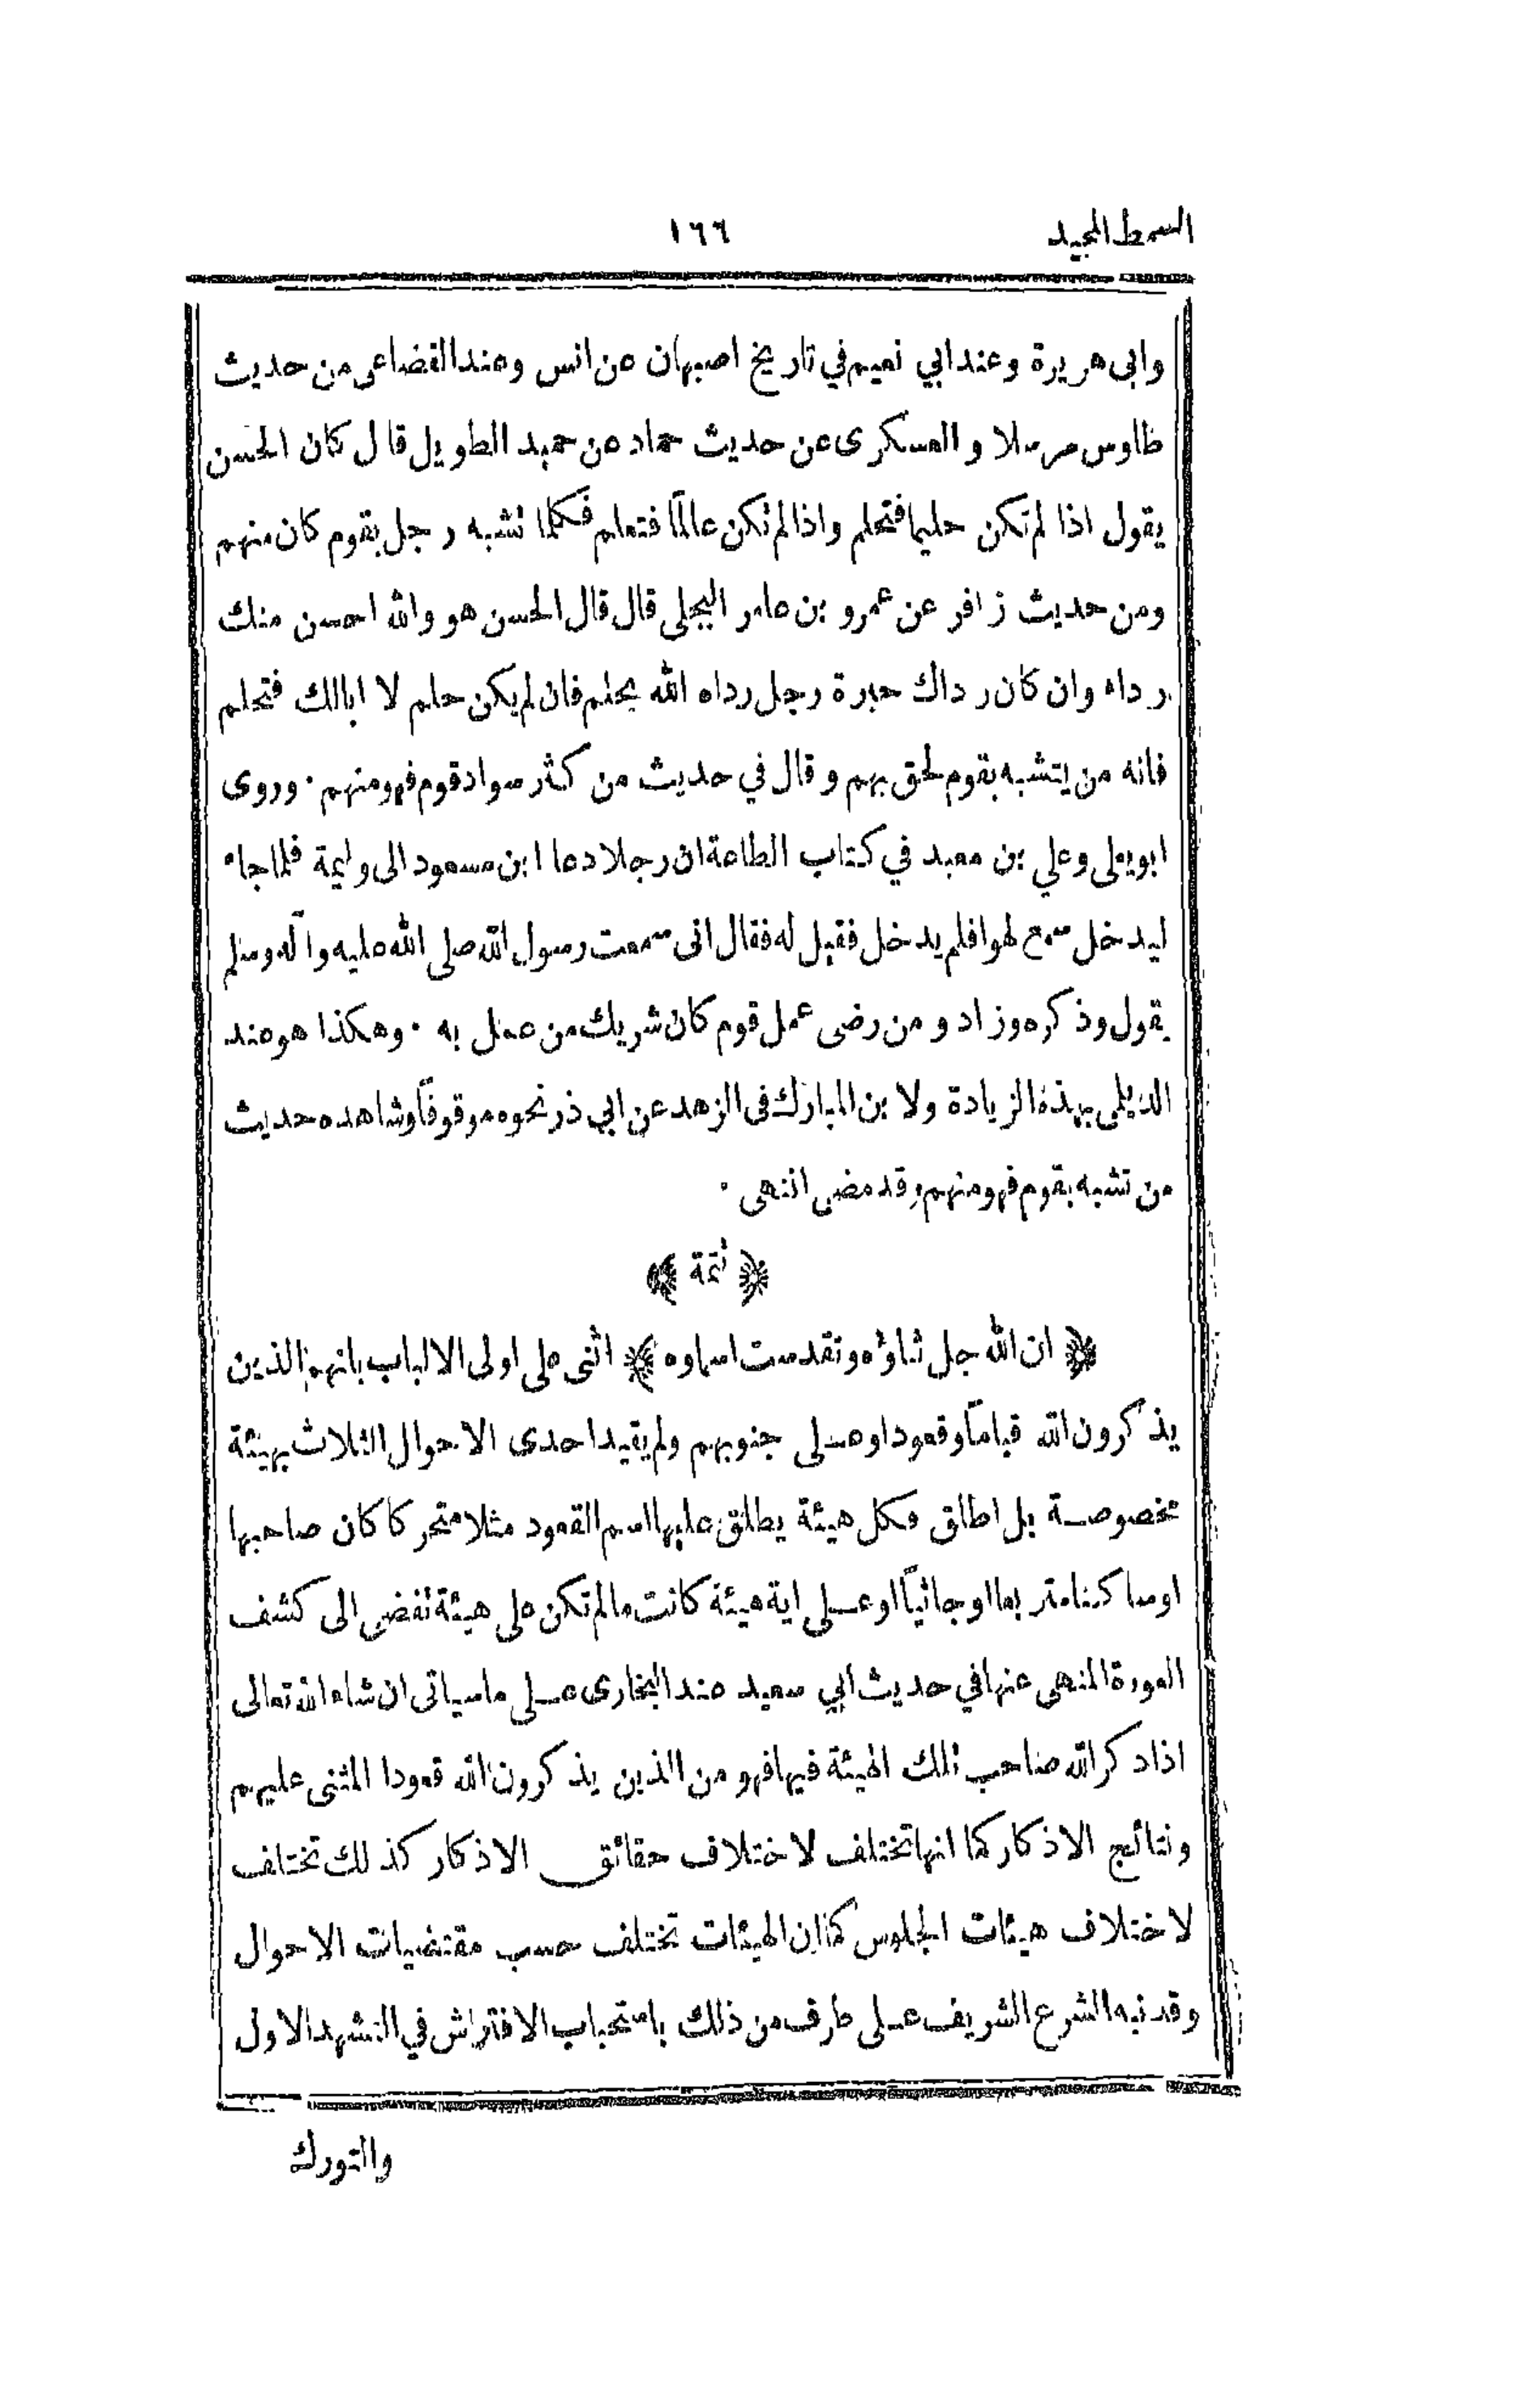 السمط المجيد
١٦٦
وابى هريرة وعند ابي نعيم في تاريخ اصبهان عن انس وعند القضاعى من حديث
طاوس مرسلا و العسكرى عن حديث حماد عن حميد الطويل قال كان الحسن
يقول اذا لم تكن حليما فتحلم واذا لم تكن عالمًا فتعلم فكلما تشبه رجل بقوم كان منهم
ومن حديث زافر عن عمرو بن عامر البجلى قال قال الحسن هو والله احسن منك
رداء وان كان رداك حبرة رجل رداه الله بحلم فان لم يكن حلم لا ابالك فتحلم
فانه من يتشبه بقوم لحق بهم وقال في حديث من كثر سواد قوم فهو منهم . وروى
ابو يعلى وعلي بن معبد في كتاب الطاعة ان رجلا دعا ابن مسعود الى وليمة فلما جاء
ليدخل سمع لهوا فلم يدخل فقيل له فقال انى سمعت رسول الله صلى الله عليه وآله وسلم
يقول وذكره وزاد ومن رضى عمل قوم كان شريك من عمل به . وهكذا هو عند
الديلمى بهذه الزيادة ولابن المبارك فى الزهد عن ابي ذر نحوه موقوفًا وشاهده حديث
من تشبه بقوم فهو منهم وقد مضى انتهى .
﴿ تتمة ﴾
﴿ ان الله جل ثناؤه وتقدست اسماوه ﴾ اثنى على اولى الالباب بانهم الذين
يذكرون الله قيامًا وقعودا وعلى جنوبهم ولم يقيد احدى الاحوال الثلاث بهيئة
مخصوصة بل اطلق فكل هيئة يطلق عليها اسم القعود مثلا متحركا كان صاحبها
اوساكنا متربعا اوجاثيًا اوعلى اية هيئة كانت مالم تكن على هيئة تفضى الى كشف
العورة المنهى عنها في حديث ابي سعيد عند البخارى على ماسياتى ان شاء الله تعالى
اذاد كر الله صاحب تلك الهيئة فيها فهو من الذين يذكرون الله قعودا المثنى عليهم
ونتائج الاذكار كما انها تختلف لاختلاف حقائق الاذكار كذلك تختلف
لاختلاف هيئات الجلوس كما ان الهيئات تختلف حسب مقتضيات الاحوال
وقد نبه الشرع الشريف على طرف من ذلك باستحباب الافتراش في التشهد الاول
والتورك